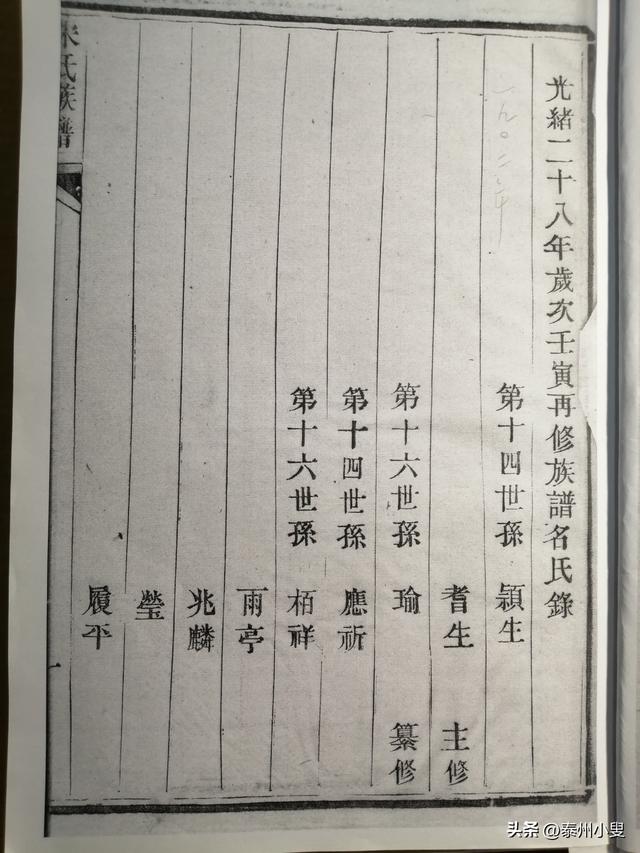 光緒二十八年歲次壬寅再修族譜名氏錄
一九〇二年
第十四世孫 潁生
耆生 主修
第十六世孫 瑜 纂修
第十四世孫 應祈
第十六世孫 栢祥
雨亭
兆麟
瑩
履平
氏族譜
一
头条 @泰州小叟